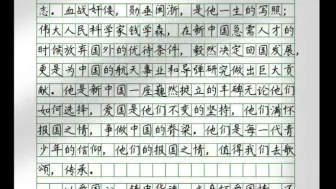 志。血战奸倭，勋垂闽浙，是他一生的写照；
伟大人民科学家钱学森，在新中国急需人才的
时候放弃国外的优待条件，毅然决定回国发展，
更是为中国的航天事业和导弹研究做出巨大贡
献。他是新中国一座巍然挺立的丰碑无论他们
如何选择，爱国是他们不变的坚持，他们满怀
报国之情，争做中国的脊梁。他们是每一代青
少年的信仰，他们的报国之情，值得我们去歌
颂，传承。